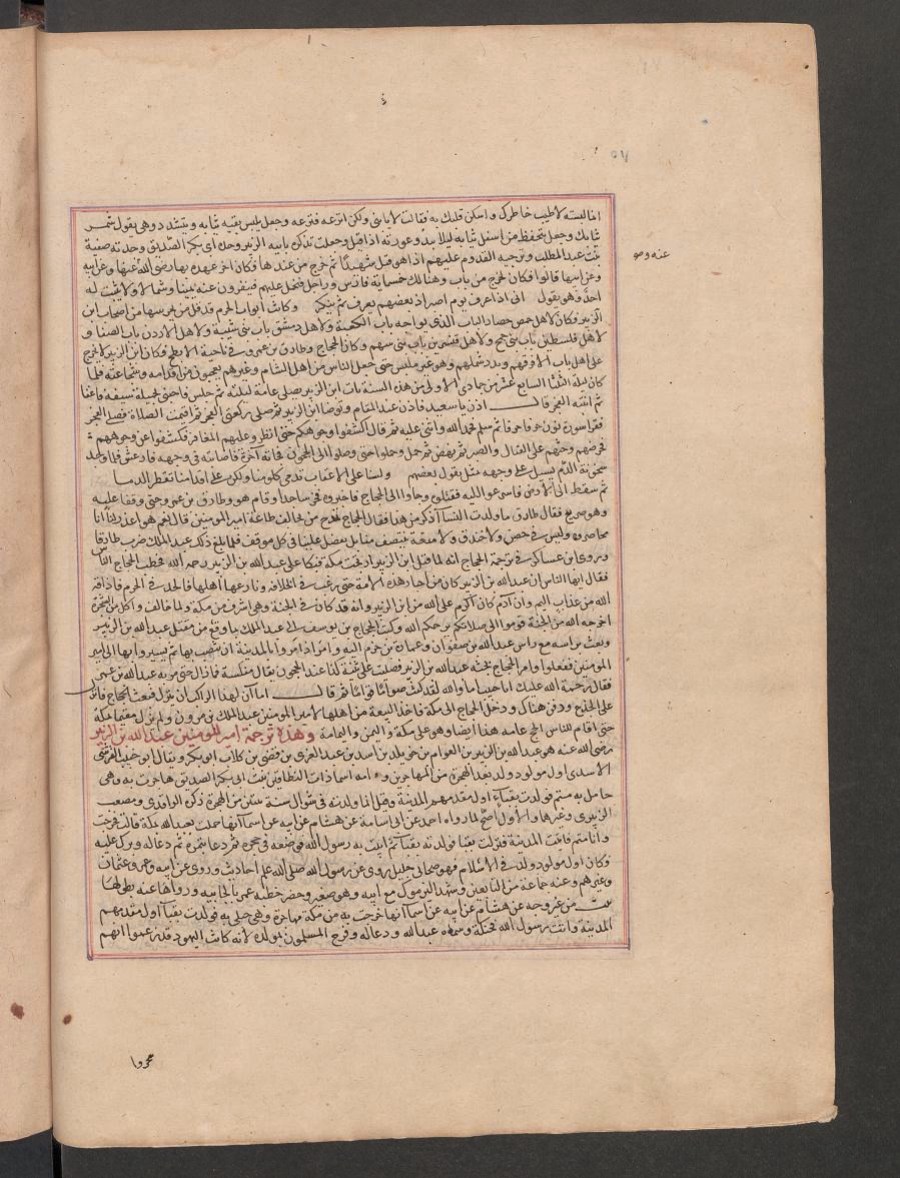 انما لبسته لاطيب خاطرك واسكن قلبك به فقالت لا يا بنى ولكن انزعه فنزعه وجعل يلبس بقية ثيابه ويتشدد وهى يقول شمر
ثيابك وجعل يتحفظ من اسفل ثيابه ليلا يبدو عورته اذا قتل وجعلت تذكره بابيه الزبير وجده ابى بكر الصديق وجدته صفية
بنت عبد المطلب وترجيه القدوم عليهم اذا هو قتل شهيدا ثم خرج من عندها فكان اخر عهده بها رضى الله عنها وعن ابيه
وعن ابيها قالوا فكان يخرج من باب وهنالك خمسماية فارس وراجل فيحمل عليهم فيتفرقون عنه يمينا وشمالا ولا يثبت له
احد وهو يقول انى اذا اعرف يوم اصبر اذ بعضهم يعرف ثم ينكر وكانت ابواب الحرم قد قل من يحرسها من اصحاب ابن
الزبير فكان لاهل حمص حصار الباب الذى يواجه باب الكعبة ولاهل دمشق باب بنى شيبة ولاهل الاردن باب الصفا و
لاهل فلسطين باب بنى جمح ولاهل قنسرين باب بنى سهم وكان الحجاج وطارق بن عمرو فى ناحية الابطح وكان ابن الزبير لا يخرج
على اهل باب الا فرقهم وبدد شملهم وهو غير ملبس حتى جعل الناس من اهل الشام وغيرهم يعجبون من اقدامه وشجاعته فلما
كان ليلة الثلثا السابع عشر من جمادى الاولى من هذه السنة بات ابن الزبير يصلى عامة ليلته ثم جلس فاحتبى بحميلة سيفه فاغفا
ثم انتبه الفجر قال اذن يا سعيد فاذن عند المقام وتوضا ابن الزبير ثم صلى ركعتى الفجر ثم اقيمت الصلاة فصلى الفجر
فقرا سورة نون حرفا حرفا ثم سلم فحمد الله واثنى عليه ثم قال اكشفوا وجوهكم حتى انظر وعليهم المغافر فكشفوا عن وجوههم
فحرضهم وحثهم على القتال والصبر ثم نهض ثم حمل وحملوا حتى وصلوا الى الحجون فجاته آجرة فاصابته فى وجهه فارعش فلما وجد
سخونة الدم يسيل على وجهه مثل بقول بعضهم ولسنا على الاعقاب تدمى كلومنا ولكن على اقدامنا تقطر الدما
ثم سقط الى الارض فاسرعوا اليه فقتلوه وجاوا الى الحجاج فاخبروه فخر ساجدا وقام هو وطارق بن عمرو حتى وقفا عليه
وهو صريع فقال طارق ما ولدت النسا اذكر من هذا فقال الحجاج تمدح من يخالف طاعة امير المومنين قال نعم هو اعذر لنا انا
محاصروه وليس فى حصن ولا خندق ولا منعة ينتصف منا بل يفضل علينا فى كل موقف فلما بلغ ذلك عبد الملك ضرب طارقا
وروى ابن عساكر فى ترجمة الحجاج انه لما قتل ابن الزبير ارتجت مكة فبكا على عبد الله بن الزبير رحمه الله فخطب الحجاج الناس
فقال ايها الناس ان عبد الله بن الزبير كان من خيار هذه الامة حتى رغب فى الخلافة ونازعها اهلها فالحد فى الحرم فاذاقه
الله من عذاب اليم وان آدم كان اكرم على الله من ابن الزبير وانه قد كان فى الجنة وهى اشرف من مكة ولما خالف واكل من الشجرة
اخرجه الله من الجنة قوموا الى صلاتكم يرحمكم الله وكتب الحجاج بن يوسف الى عبد الملك بما وقع من مقتل عبد الله بن الزبير
وبعث براسه مع راس عبد الله بن صفوان وعمارة بن حزم اليه وامر اذا مروا بالمدينة ان تنصب بها ثم يسيروا بها الى امير
المومنين ففعلوا وامر الحجاج بجثه عبد الله بن الزبير فصلبت على ثنية كدا عند الحجون يقال منكسة فما زال حتى مر به عبد الله بن عمر
فقال رحمة الله عليك ابا خبيب اما والله لقد كنت صواما قواما ثم قال اما آن لهذا الراكب ان ينزل فبعث الحجاج فانزل
على الجذع ودفن هناك ودخل الحجاج الى مكة فاخذ البيعة من اهلها لامير المومنين عبد الملك بن مروان ولم يزل مقيما بمكة
حتى اقام للناس الحج عامه هذا ايضا وهو على مكة واليمن واليمامة وهذه ترجمة امير المومنين عبد الله بن الزبير
رضى الله عنه هو عبد الله بن الزبير بن العوام بن خويلد بن اسد بن عبد العزى بن قصى بن كلاب ابو بكر ويقال ابو خبيب القرشى
الاسدى اول مولود ولد بعد الهجرة من المهاجرين وامه اسما ذات النطاقين بنت ابى بكر الصديق هاجرت به وهى
حامل به متم فولدته بقباء اول مقدمهم المدينة وقيل انما ولدته فى شوال سنة سنتين من الهجرة ذكره الواقدى ومصعب
الزبيرى وغيرهما والاول اصح لما رواه احمد عن ابى اسامة عن هشام عن ابيه عن اسما انها حملت بعبد الله بمكة قالت فخرجت
وانا متم فاتيت المدينة فنزلت بقبا فولدته بقبا ثم اتيت به رسول الله فوضعه فى حجره ثم دعا بتمرة ثم دعا له وبرك عليه
وكان اول مولود ولد فى الاسلام فهو صحابى جليل روى عن رسول الله صلى الله علم احاديث وروى عن ابيه وعمر وعثمان
وغيرهم وعنه جماعة من التابعين وشهد اليرموك مع ابيه وهو صغير وحضر خطبة عمر بالجابية ورواها عنه بطولها
من غير وجه عن هشام عن ابيه عن اسما انها خرجت به من مكة مهاجرة وهى حبلى به فولدته بقبا اول مقدمهم
المدينة واتت رسول الله فحنكه وسماه عبد الله ودعا له وفرح المسلمون بمولده لانه كانت اليهود قد زعموا انهم